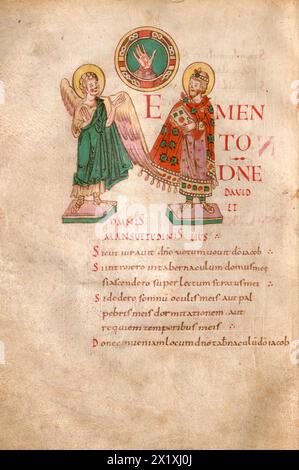 E MEN
TO
DNE
DAVID
ET
OMNIS
MANSUETUDINIS EIUS
Sicut iuravit dño votum vovit dõ iacob
Si introiero in tabernaculum domus meę
si ascendero super lectum strati mei
Si dedero somnũ oculis meis aut pal
pebris meis dormitationem aut
requiem temporibus meis
Donec inveniam locum dño tabnaculũ dõ iacob
alamy
www.alamy.com